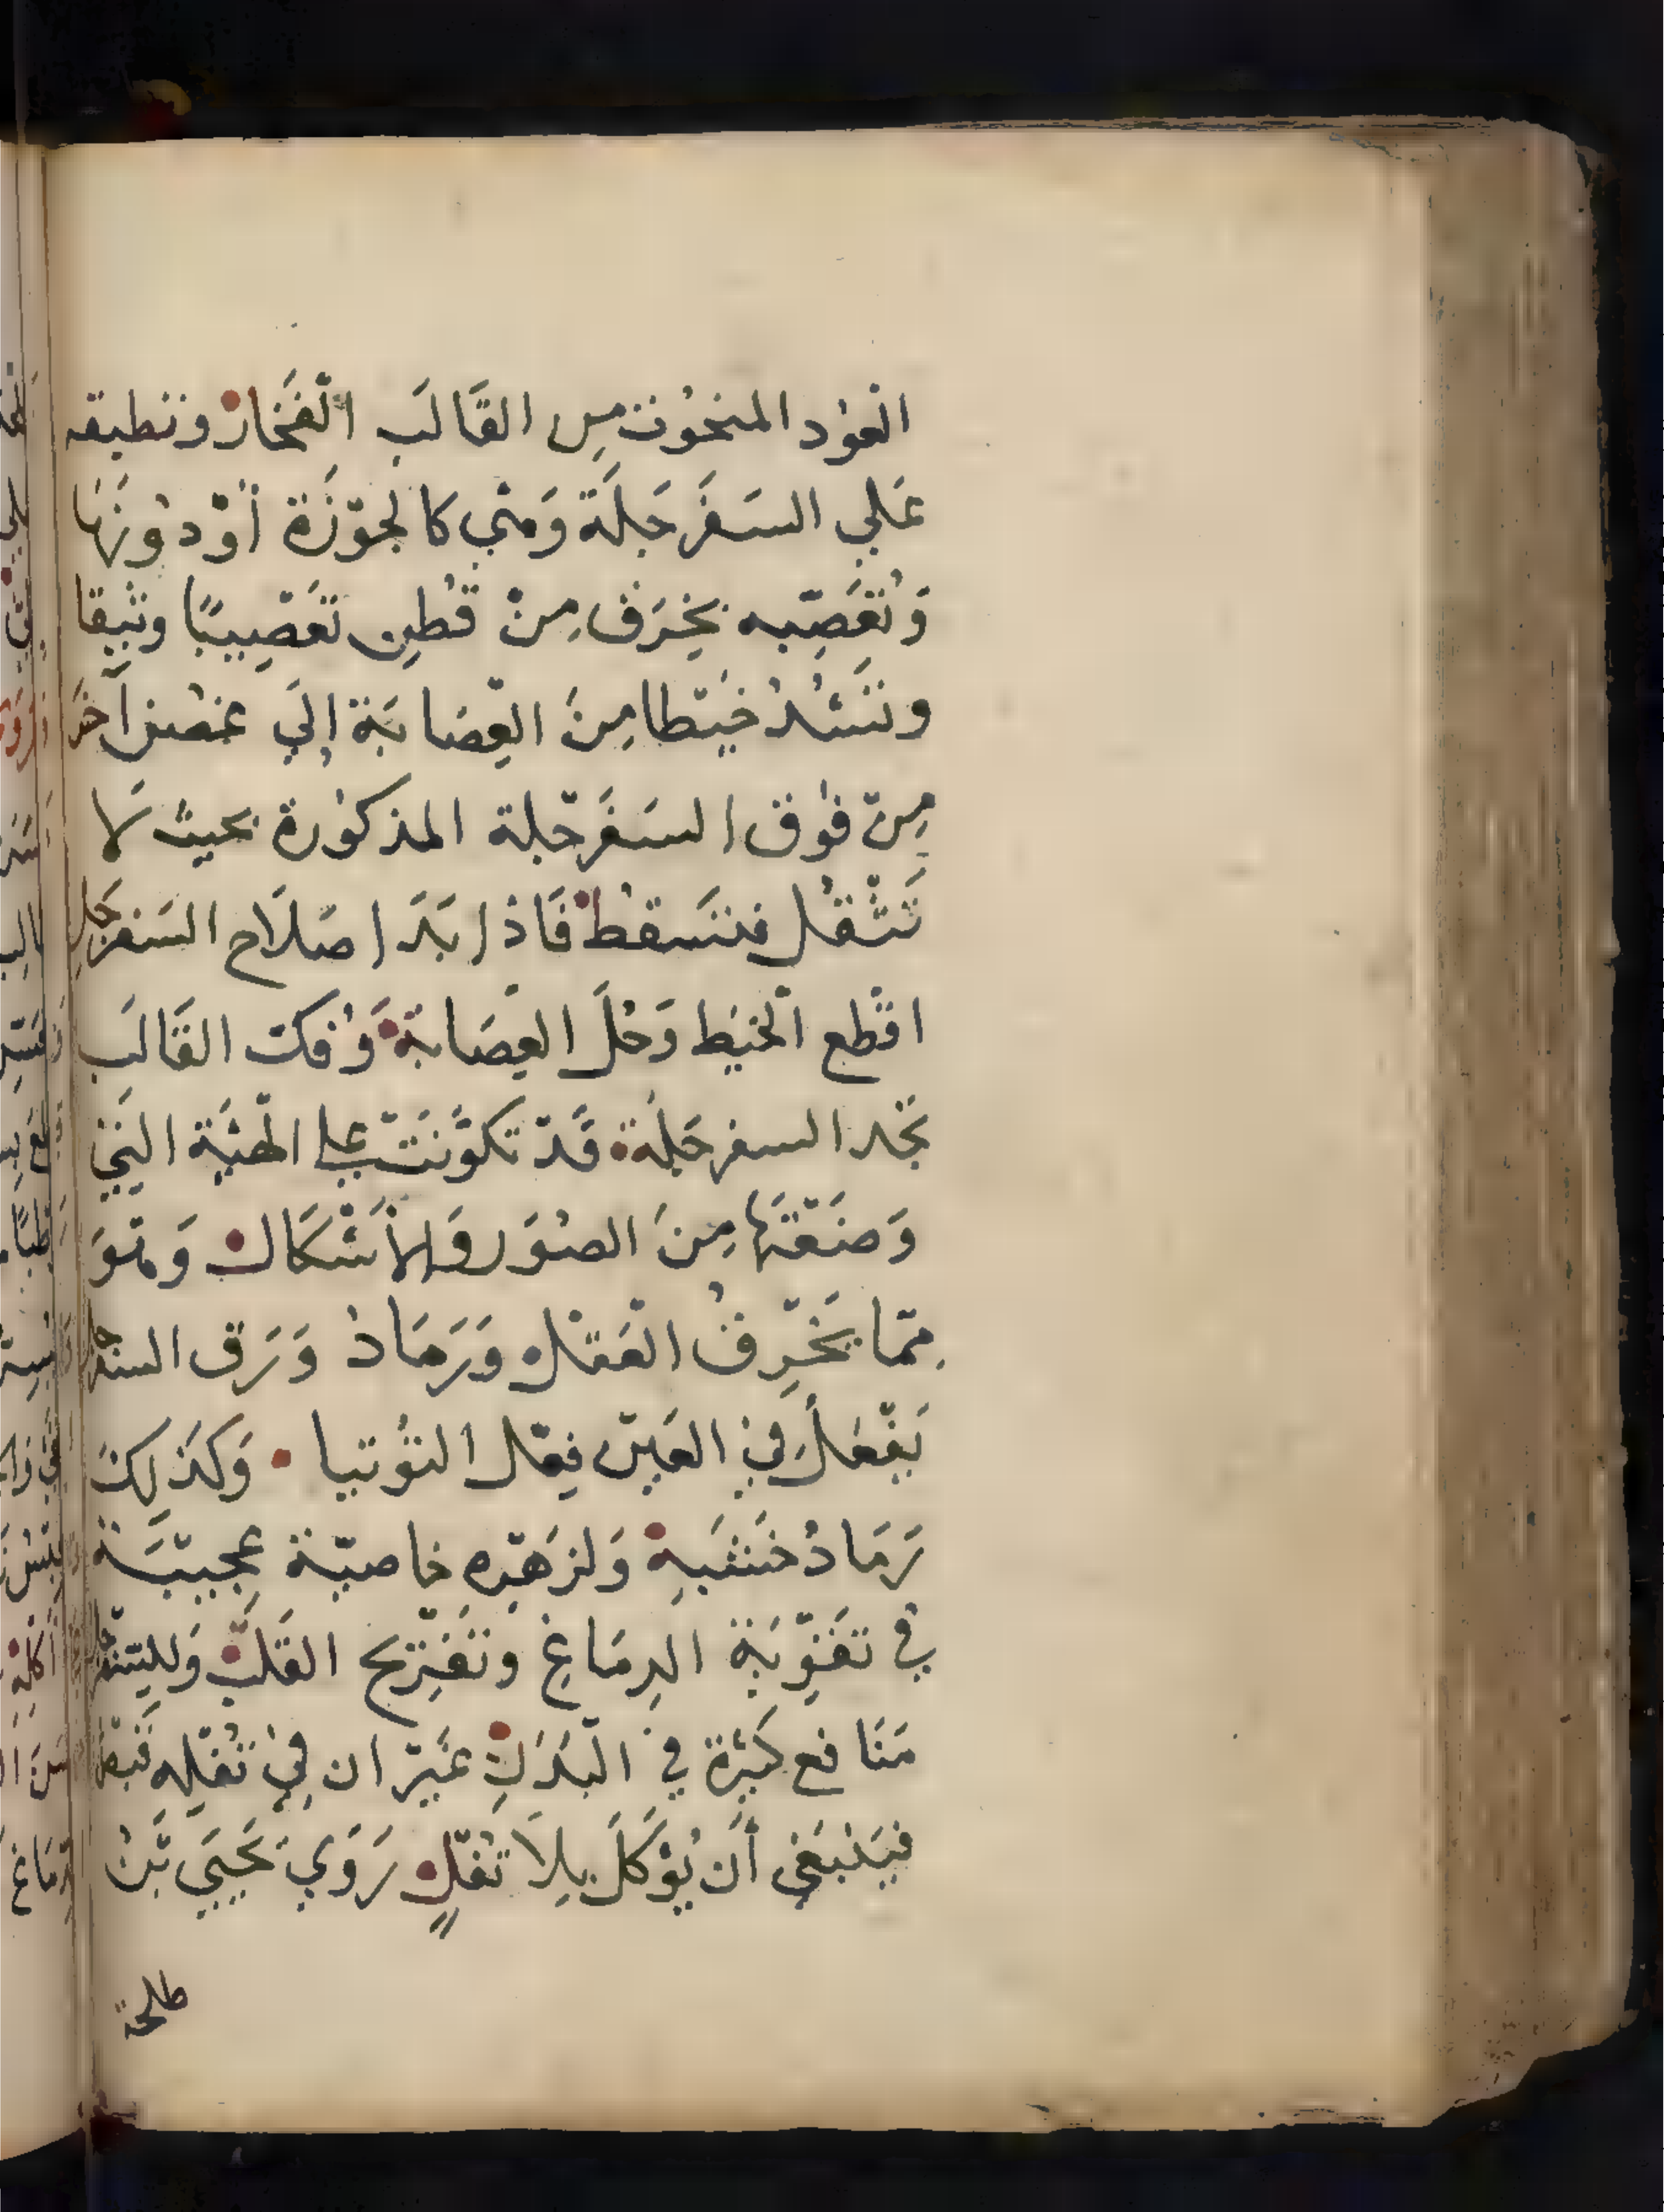 العُود المنحُوت مِن القَالَب الفَخار وتطبقه
عَلي السَفَرجَلَة وَهي كالجوْزَة أوْ دوُنَها
وَتُعَصِّبه بخِرَق مِنْ قُطن تَعْصِيبًا وثيقا
وتَشُدُ خَيْطا مِنَ العِصَابَة إلَي غصْن آخر
مِنْ فوْق السَفَرْجلة المذكوُرة بحيث لَا
تَثْقُل فتَسقط فَاذا بَدَا صَلَاح السَفرجَلِ
اقْطع الْخيَط وَحُلَّ العِصَابَة وَفُكّ القَالَب
تَجد السفرجَلَة قَدْ تكوَّنَتْ علي الْهيْئَة التي
وَضَعْتَهَا مِنَ الصُوَر وَالأَشْكَال وَهوَ
مِمّا يخَرّفُ الْعَقْل وَرَمَادُ وَرَق السفرجل
يَفْعَلُ فيْ العَيْن فِعْل التُوتيا وَكَذلِكَ
رَمَادُ خَشَبِهِ وَلزَهْرِهِ خاصيّة عجيبَة
في تقوِيَة الدِمَاغ وتَفْرِيح القَلْب وَللسّفرجل
مَنَافع كَثِيرة في الْبَدَنِ غَيْرَ ان فيْ ثُفْلِه قَبْضا
فيَنبَغي أَن يُؤكَلَ بِلَا ثُفْلٍ رَوَي يَحْيَي بْنُ
طلحة